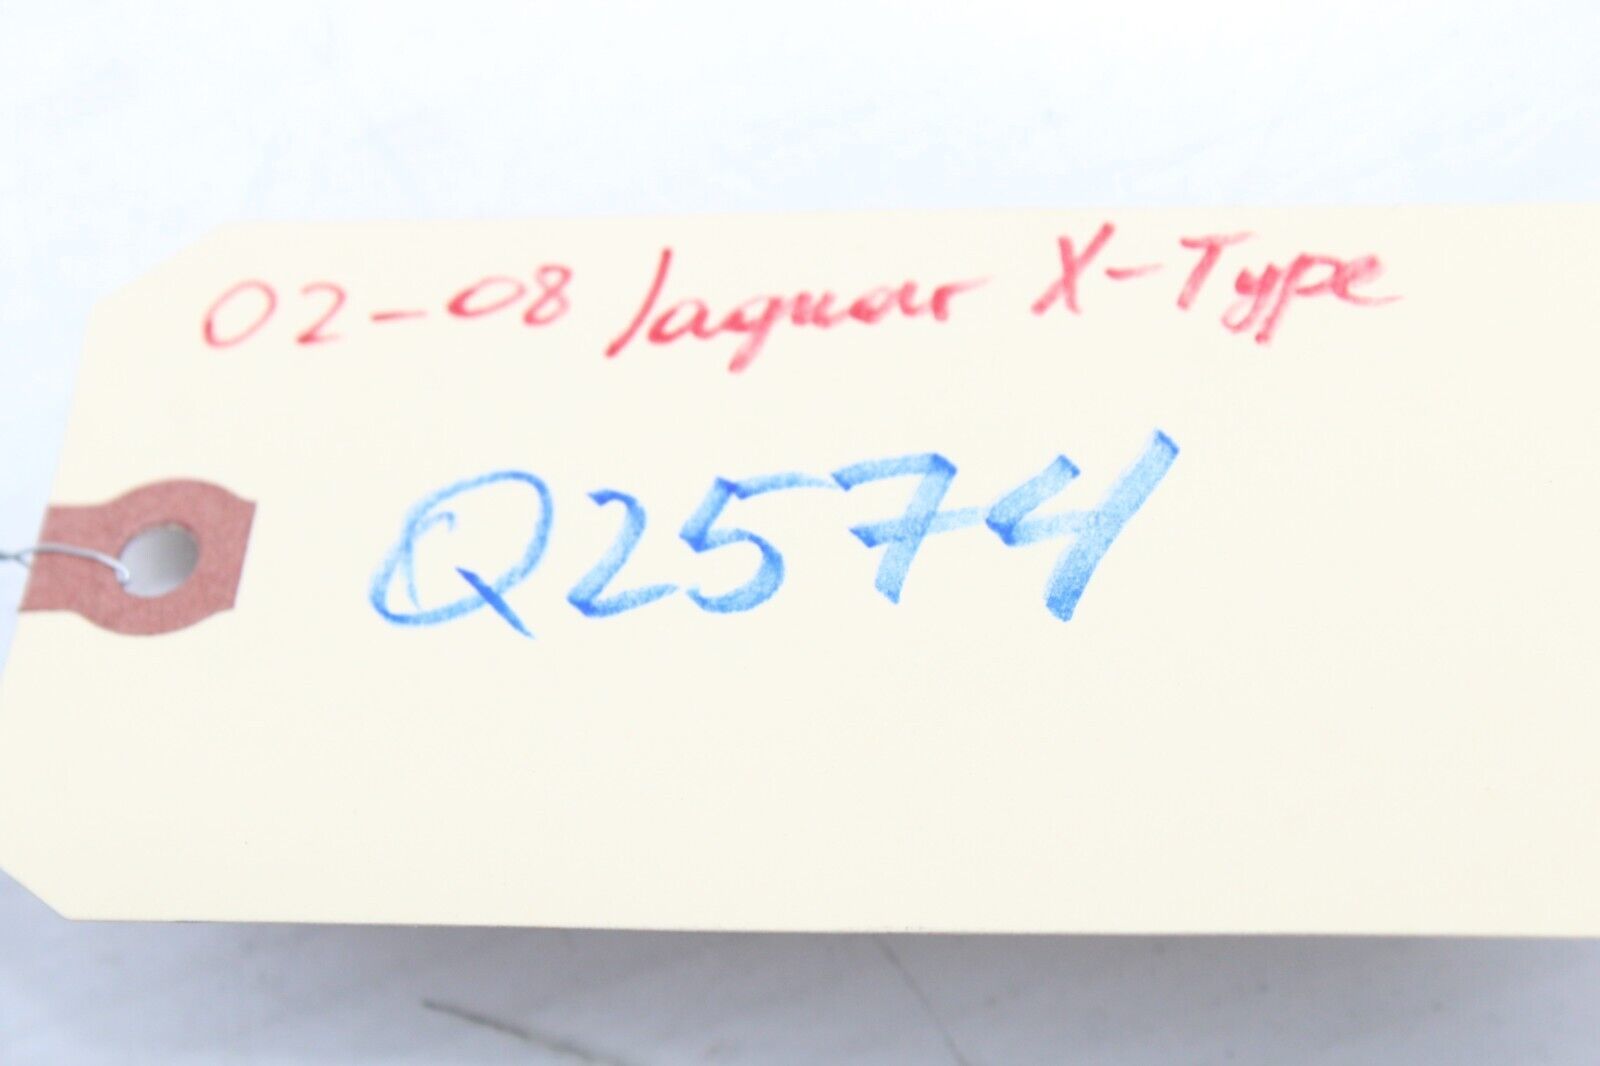 02-08 Jaguar X-Type
Q2574